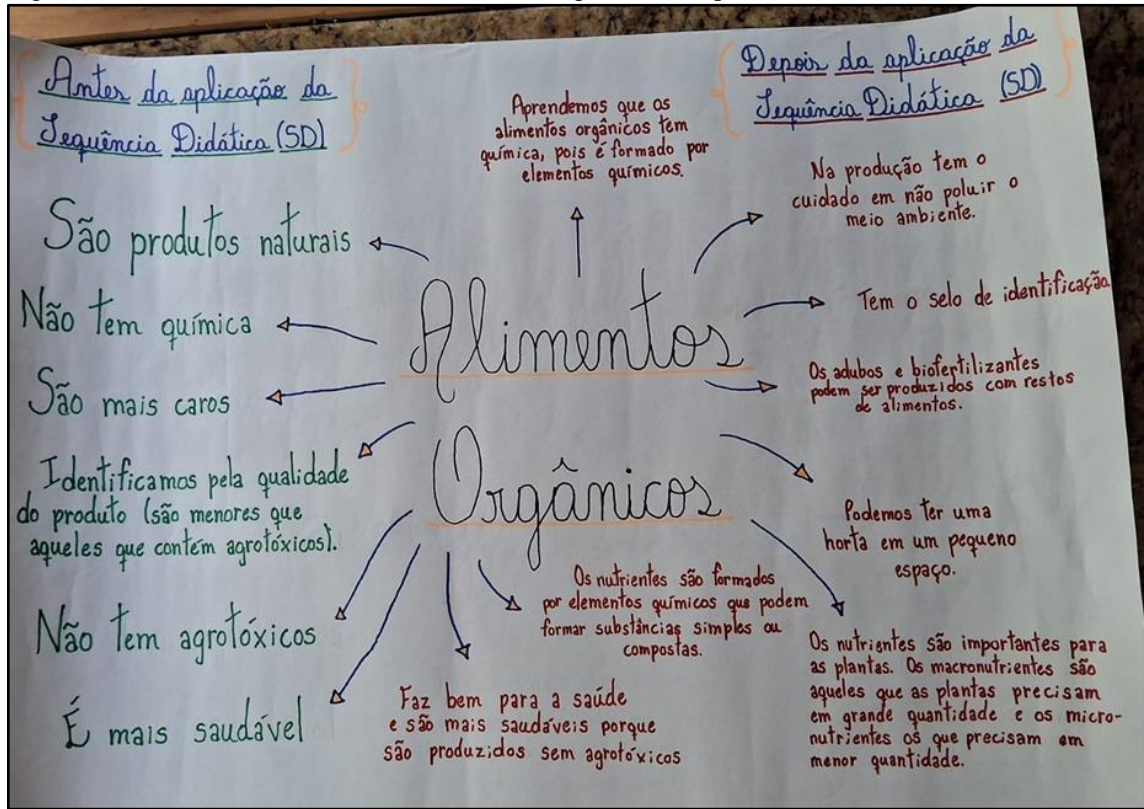 Antes da aplicação da
Sequência Didática (SD)
São produtos naturais
Não tem química
São mais caros
Identificamos pela qualidade
do produto (são menores que
aqueles que contém agrotóxicos).
Não tem agrotóxicos
É mais saudável
Alimentos
Orgânicos
Depois da aplicação da
Sequência Didática (SD)
Aprendemos que os
alimentos orgânicos tem
química, pois é formado por
elementos químicos.
Na produção tem o
cuidado em não poluir o
meio ambiente.
Tem o selo de identificação.
Os adubos e biofertilizantes
podem ser produzidos com restos
de alimentos.
Podemos ter uma
horta em um pequeno
espaço.
Os nutrientes são importantes para
as plantas. Os macronutrientes são
aqueles que as plantas precisam
em grande quantidade e os micro-
nutrientes os que precisam em
menor quantidade.
Os nutrientes são formados
por elementos químicos que podem
formar substâncias simples ou
compostas.
Faz bem para a saúde
e são mais saudáveis porque
são produzidos sem agrotóxicos